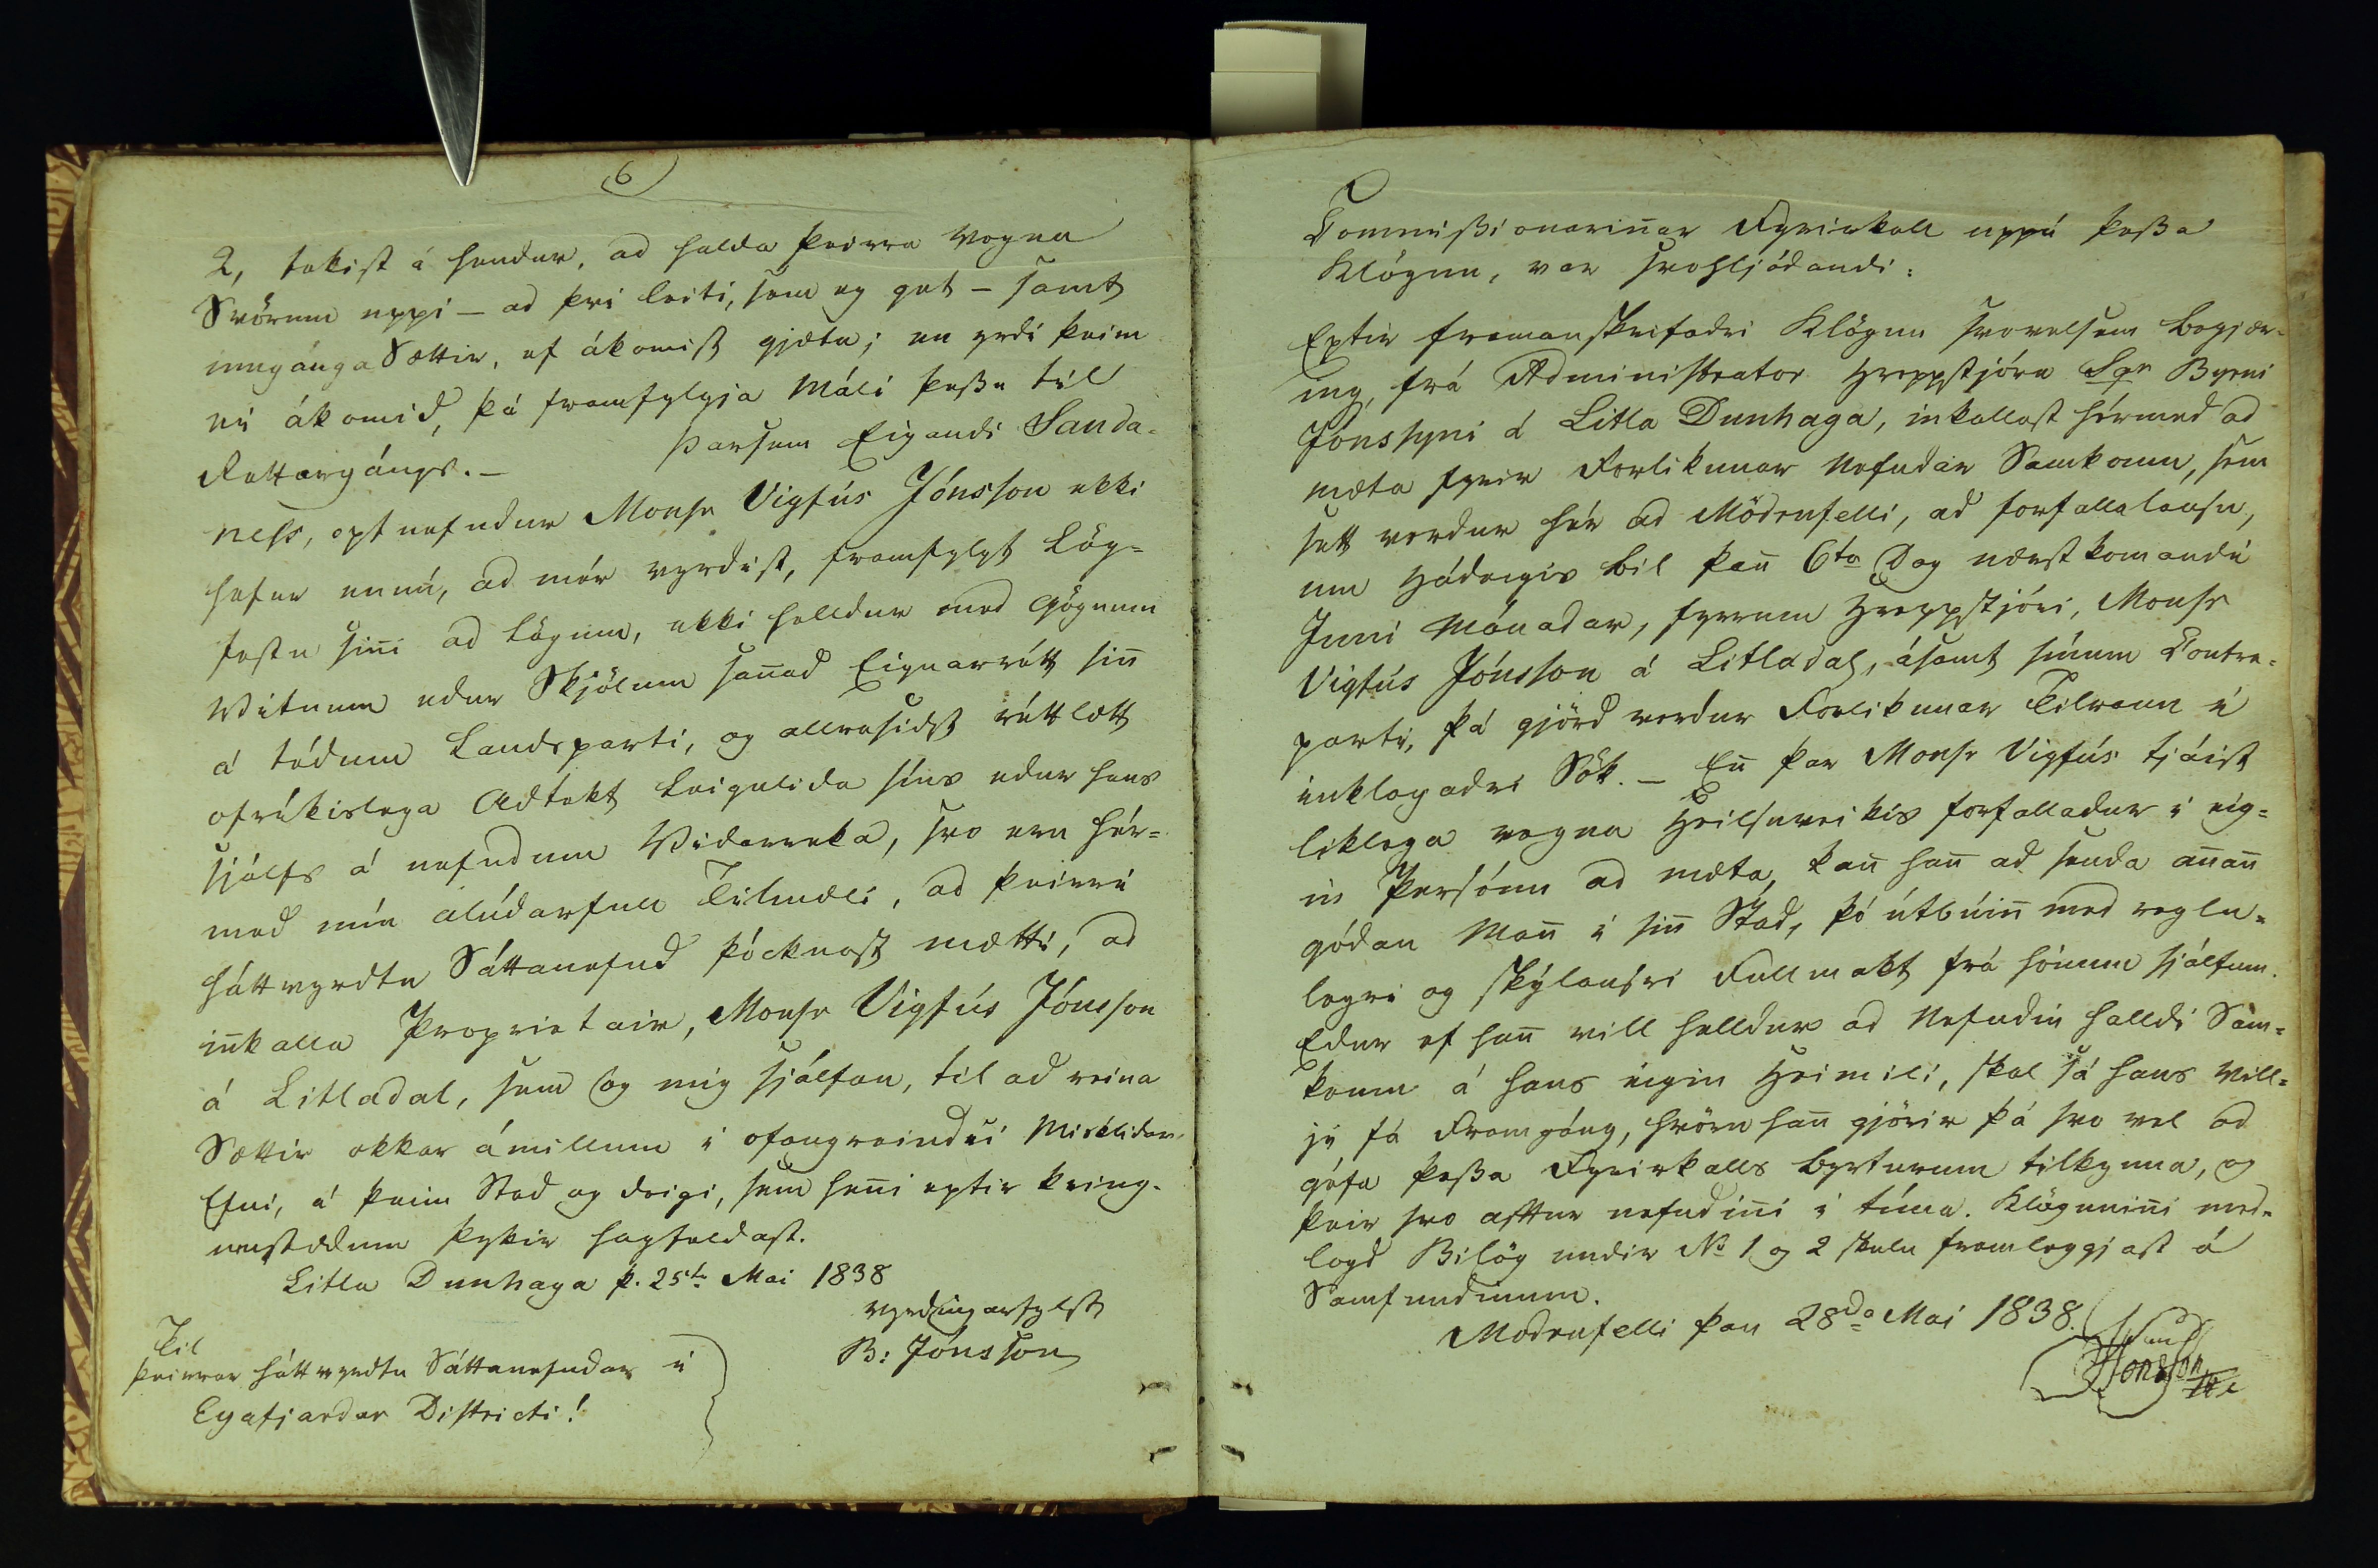 6
2, tekist á hendur, ad halda þeirra vegna
Svörum uppi - ad því leiti, sem eg get - samt
inngánga Sættir, ef ákomist gjætu; en yrdi þeim
ei ákomid, þá framfylgja Máli þessu til
Rettargángs. - Þarsem Eigandi Sanda-
ness, optnefndur Monsr Vigfús Jónsson ekki
hefur ennú, ad mér virdist, framfylgt Lög-
festu sin̄i ad Lögum, ekki helldur med Gögnum
Vitnum edur Skjölum san̄ad Eignarrétt sin̄
á tédum Landsparti, og allrasídst réttlætt
ofríkislega Adtekt Leigulida síns edur hans
sjálfs á nefndum Vidarreka, svo eru hér-
med mín alúdarfull Tilmæli, ad þeirri
háttvyrdtu Sáttanefnd þócknast mætti, ad
in̄kalla Proprietair, Monsr Vigfús Jónsson
á Litladal, sem og mig sjálfan, til ad reina
Sættir okkar ámillum í ofangreindri Misklídar
Efni, á þeim Stad og deigi, sem hen̄i eptir kring-
umstædum þykir hagfeldast.
Litla Dunhaga þ. 25ta Mai 1838
vyrdingarfylst
B: Jónsson
Til
þeirrar háttvyrdtu Sáttanefndar í
Eyafjardar Districti!
Commissionarin̄ar Fyrirkall uppá þessa
Klögun, var svohljódandi:
Eptir framanskrifadri Klögun svovelsem begjær-
ing, frá Administrator Hreppstjóra Sgr Byrni
Jónssyni á Litla Dunhaga, inkallast hérmed ad
mæta fyrir Forlikunar Nefndar Samkomu, sem
sett verdur hér ad Mödrufelli, ad forfallalausu,
um Hádeigis bil þan̄ 6ta Dag næstkomandi
Juni Mánadar, fyrrum Hreppstjóri, Monsr
Vigfús Jónsson á Litladal, ásamt sínum Contra-
parti, þá gjörd verdur Forlikunar Tilraun í
inklagadri Sök. - En̄ þar Monsr Vigfús tjáist
liklega vegna Heilsuveikis forfalladur í eig-
in Persónu ad mæta, kan̄ han̄ ad senda an̄an̄
gódan Man̄ í sin̄ Stad, þó útbúin̄ med reglu-
legri og skýlausri Fullmakt frá hönum sjálfum.
Edur ef han̄ vill helldur ad Nefndin halldi Sam-
komu á hans eigin Heimili, skal sá hans Vill-
ji fá Framgáng, hvörn han̄ gjörir þá svo vel ad
géfa þessa Fyrirkalls byrturum tilkynna, og
þeir svo afttur nefndin̄i í tíma. Klögunin̄i med-
legd Bilög undir No 1 og 2 skulu framleggjast á
Samfundinum.
Modrufelli þan 28da Mai 1838.
Jonsson